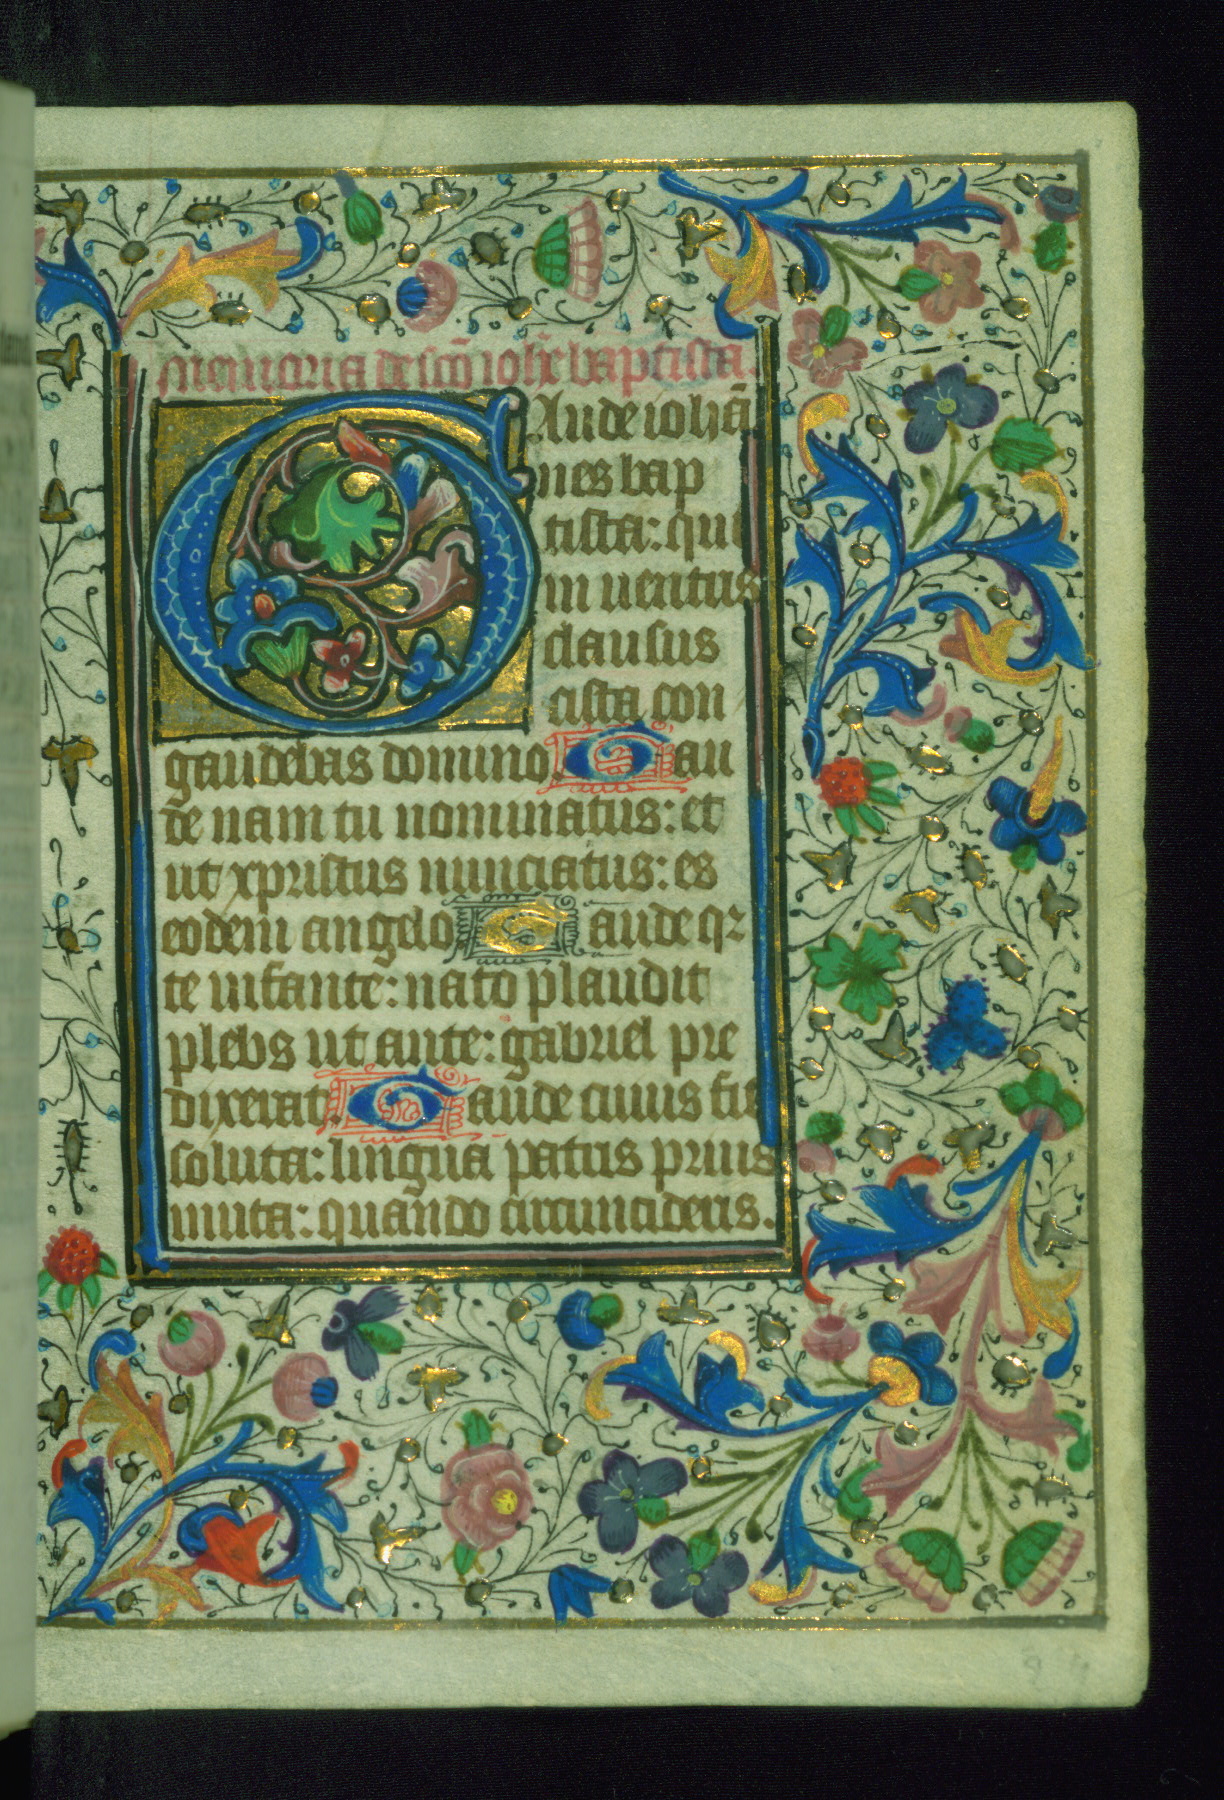 Memoria de scō ioħe baptista.
GAude iohā
nes bap
tista: qui
in uentris
clausus
cista con
gaudebas domino. Gau
de nam tu nominatus: et
ut xpristus nunciatus: es
eodem angelo Gaude qꝛ
te infante: nato plaudit
plebs ut ante: gabriel pre
dixerat. Gaude cuius fit
soluta: lingua patris prius
muta: quando circumcideris.